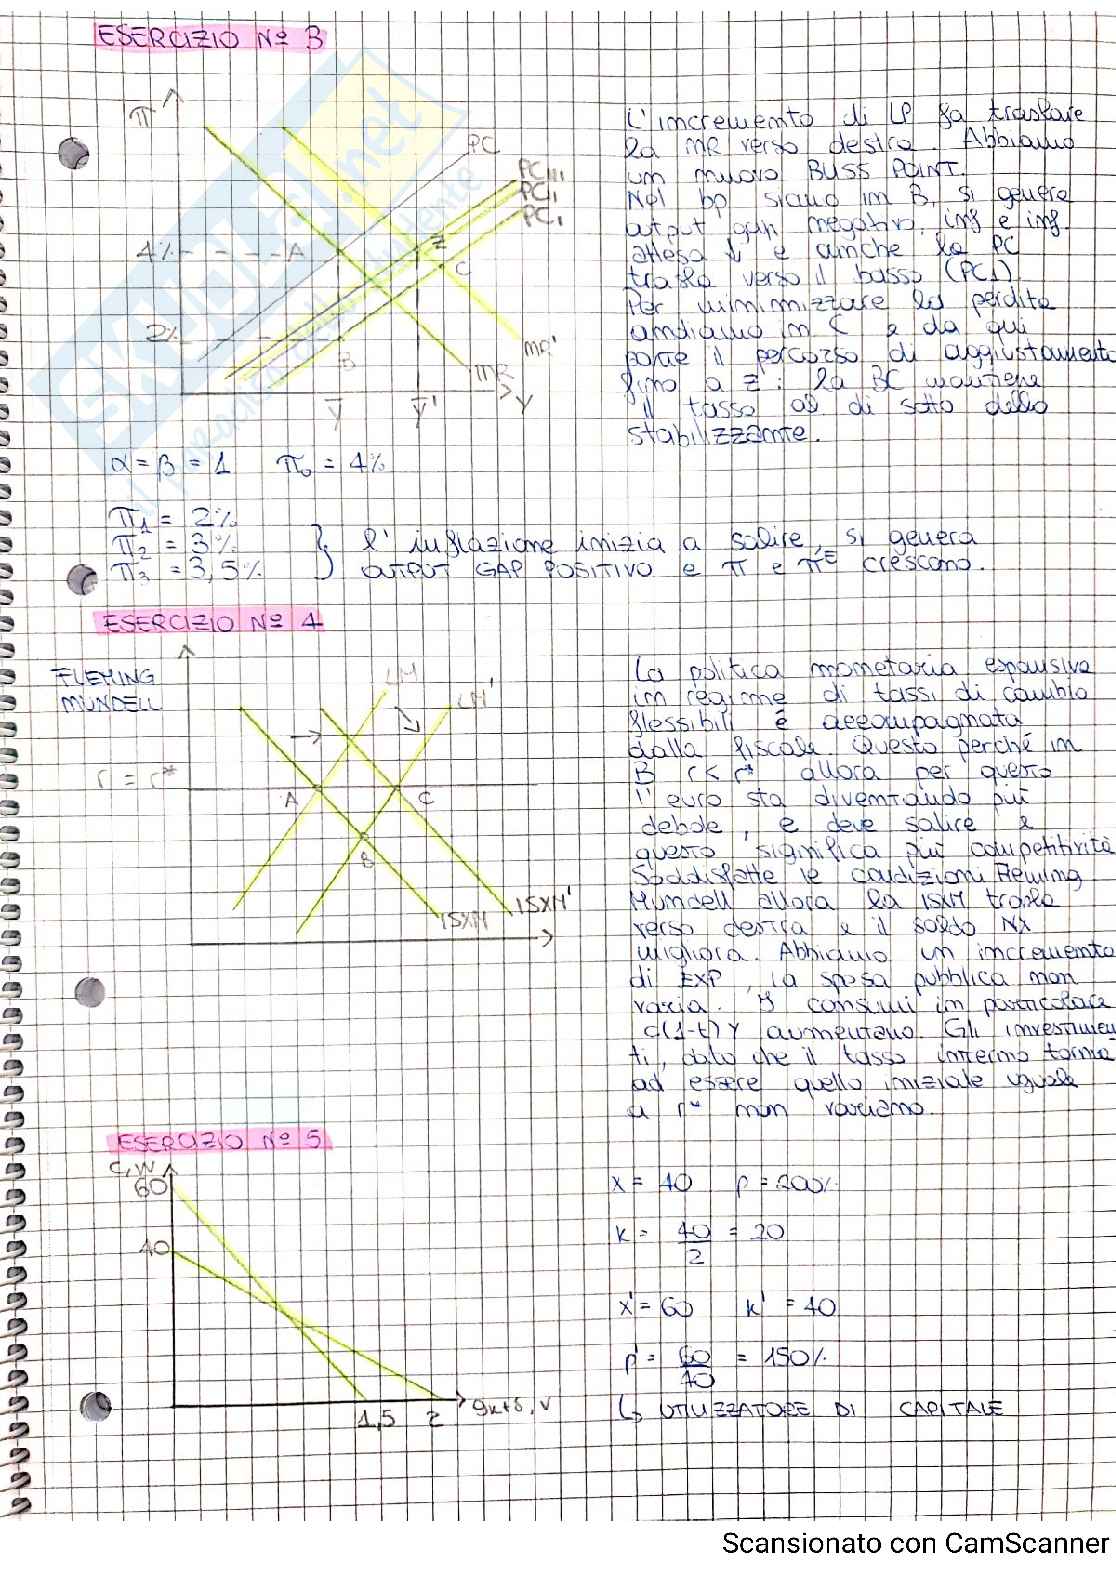 ESERCIZIO Nº 3
π
4%
2%
A
B
C
Z
PC
PC III
PC II
PC I
MR'
MR
ȳ
ȳ'
y
L'incremento di LP fa traslare
la MR verso destra. Abbiamo
un nuovo BLISS POINT.
Nel bp siamo in B, si genera
output gap negativo, inf e inf.
attesa ↓ e anche la PC
trasla verso il basso (PC1)
Per minimizzare la perdita
andiamo in C e da qui
parte il percorso di aggiustamento
fino a Z: la BC mantiene
il tasso al di sotto dello
stabilizzante.
α = β = 1 π₀ = 4%
π1 = 2%
π2 = 3%
π3 = 3,5%
} l'inflazione inizia a salire, si genera
OUTPUT GAP POSITIVO e π e πᴱ crescono.
ESERCIZIO Nº 4
FLEMING
MUNDELL
r = r*
LM
LM'
A
C
B
ISXM
ISXM'
La politica monetaria espansiva
in regime di tassi di cambio
flessibili è accompagnata
dalla fiscale. Questo perché in
B r < r* allora per questo
l'euro sta diventando più
debole, e deve salire e
questo significa più competitività
Soddisfatte le condizioni Fleming
Mundell allora la ISXM trasla
verso destra e il saldo NX
migliora. Abbiamo un incremento
di EXP, la spesa pubblica non
varia. I consumi in particolare
c(1-t)Y aumentano. Gli investimen
ti, dato che il tasso interno torna
ad essere quello iniziale uguale
a r* non variano.
ESERCIZIO Nº 5
C, W
60
40
1,5
2
gk+δ, v
x = 40 ρ = 200%
k = 40/2 = 20
x' = 60 k' = 40
ρ' = 60/40 = 150%
↳ UTILIZZATORE DI CAPITALE
Scansionato con CamScanner